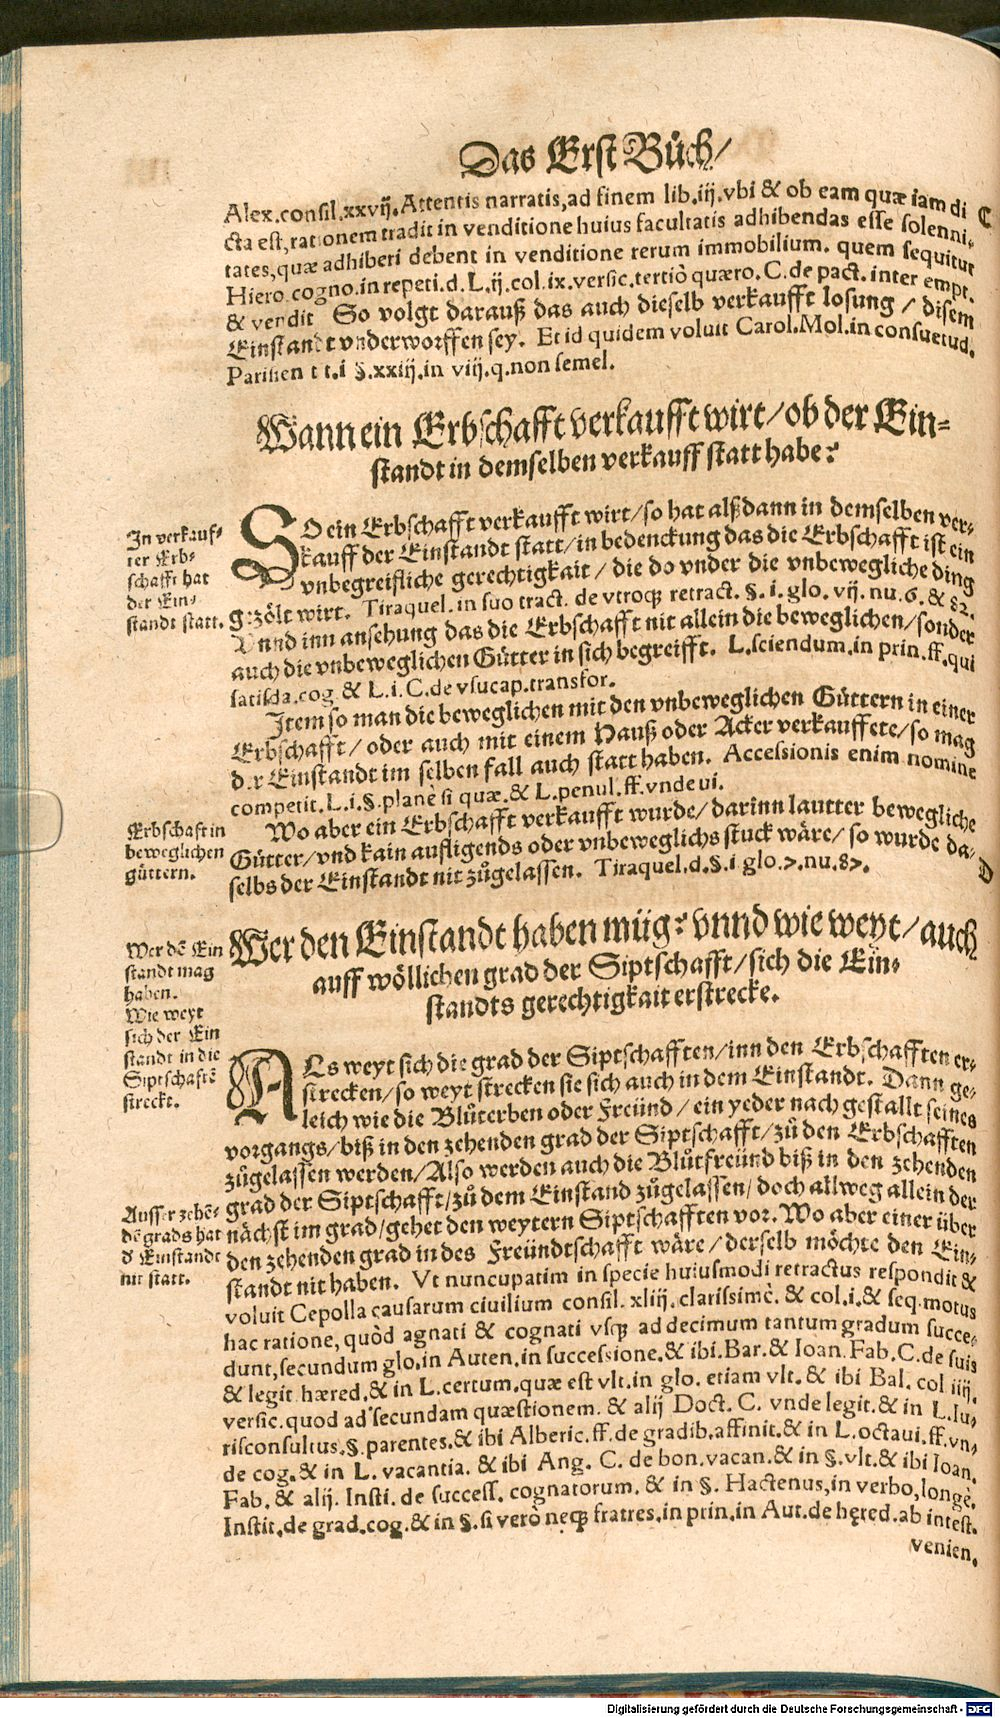 Das Erst Bůch/
Alex.consil.xxvij.Attentis narratis,ad finem lib.iij.vbi & ob eam quæ iam di C
cta est,rationem tradit in venditione huius facultatis adhibendas esse solenni-
tates,quæ adhiberi debent in venditione rerum immobilium. quem sequitur
Hiero.cogno.in repeti.d.L.ij.col.ix.versic.tertiò quæro.C.de pact.inter empt.
& vendit So volgt darauß das auch dieselb verkaufft losung / disem
Einstandt vnderworffen sey. Et id quidem voluit Carol.Mol.in consuetud.
Parisien t t.i §.xxiij.in viij.q.non semel.
Wann ein Erbschafft verkaufft wirt/ob der Ein-
standt in demselben verkauff statt habe?
In verkauf-
ter Erb-
schafft hat
der Ein-
standt statt.
SO ein Erbschafft verkaufft wirt/so hat alßdann in demselben ver-
kauff der Einstandt statt/in bedenckung das die Erbschafft ist ein
vnbegreifliche gerechtigkait / die do vnder die vnbewegliche ding
gezölt wirt. Tiraquel.in suo tract. de vtroq; retract. §. i. glo. vij. nu.6. & 82.
Vnnd inn ansehung das die Erbschafft nit allein die beweglichen/sonder
auch die vnbeweglichen Gütter in sich begreifft. L.sciendum.in prin.ff.qui
satisda.cog & L.i.C.de vsucap.transfor.
Item so man die beweglichen mit den vnbeweglichen Güttern in einer
Erbschafft/ oder auch mit einem Hauß oder Acker verkauffete/so mag
der Einstandt im selben fall auch statt haben. Accessionis enim nomine
competit.L.i.§.planè si quæ.& L.penul.ff.vnde vi.
Erbschaft in
beweglichen
güttern.
Wo aber ein Erbschafft verkaufft wurde/ darinn lautter bewegliche
Gütter/vnd kain aufligends oder vnbeweglichs stuck wäre/ so wurde da-
selbs der Einstandt nit zůgelassen. Tiraquel.d.§.i glo.7.nu.87. D
Wer den Einstandt haben müg? vnnd wie weyt/auch
auff wöllichen grad der Siptschafft/sich die Ein-
standts gerechtigkait erstrecke.
Wer dē Ein
standt mag
haben.
Wie weyt
sich der Ein
standt in die
Siptschaftē
streckt.
ALs weyt sich die grad der Siptschafften/inn den Erbschafften er-
strecken/so weyt strecken sie sich auch in dem Einstandt. Dann ge-
leich wie die Blůterben oder Freünd / ein yeder nach gestallt seines
vorgangs/biß in den zehenden grad der Siptschafft/zů den Erbschafften
zůgelassen werden/Also werden auch die Blůtfreünd biß in den zehenden
grad der Siptschafft/zů dem Einstand zůgelassen/doch allweg allein der
nächst im grad/gehet den weytern Siptschafften vor. Wo aber einer über
den zehenden grad in des Freündtschafft wäre / derselb möchte den Ein-
standt nit haben. Vt nuncupatim in specie huiusmodi retractus respondit &
Ausser zehē-
dē grads hat
d Einstandt
nit statt.
voluit Cepolla causarum ciuilium consil. xliij.clarissimè. & col.i.& seq.motus
hac ratione, quòd agnati & cognati vsq; ad decimum tantum gradum succe-
dunt,secundum glo.in Auten.in successione.& ibi.Bar.& Ioan.Fab.C.de suis
& legit hæred.& in L.certum.quæ est vlt.in glo. etiam vlt. & ibi Bal. col iiij.
versic.quod ad secundam quæstionem. & alij Doct. C. vnde legit.& in L.Iu-
risconsultus.§.parentes.& ibi Alberic.ff.de gradib.affinit.& in L.octaui.ff.vn-
de cog.& in L. vacantia. & ibi Ang. C. de bon.vacan.& in §.vlt.& ibi Ioan.
Fab. & alij. Insti. de success. cognatorum. & in §. Hactenus,in verbo,longè.
Instit.de grad.cog.& in §.si verò neq; fratres.in prin.in Aut.de hęred.ab intest.
venien.
Digitalisierung gefördert durch die Deutsche Forschungsgemeinschaft - DFG